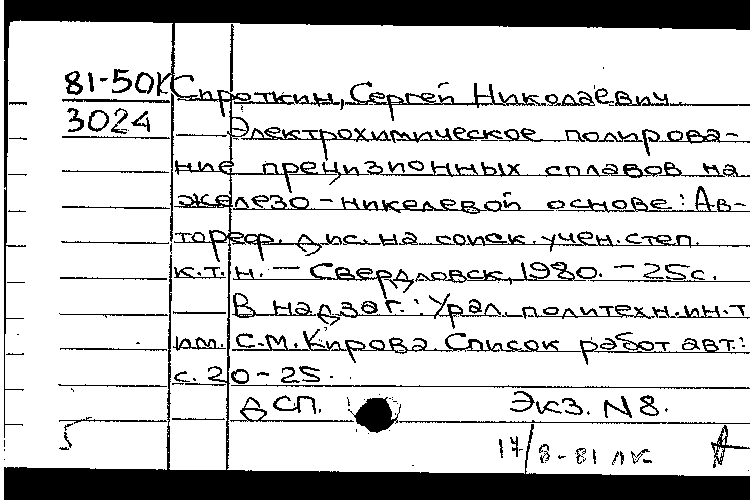 81-50К Сироткин, Сергей Николаевич.
3024 Электрохимическое полирова-
ние прецизионных сплавов на
железо-никелевой основе: Ав-
тореф. дис. на соиск. учен. степ.
к.т.н. – Свердловск, 1980. – 25с.
В надзаг.: Урал. политехн. ин-т
им. С.М. Кирова. Список работ авт.:
с. 20-25.
ДСП. Экз. N 8.
17/8-81 лк